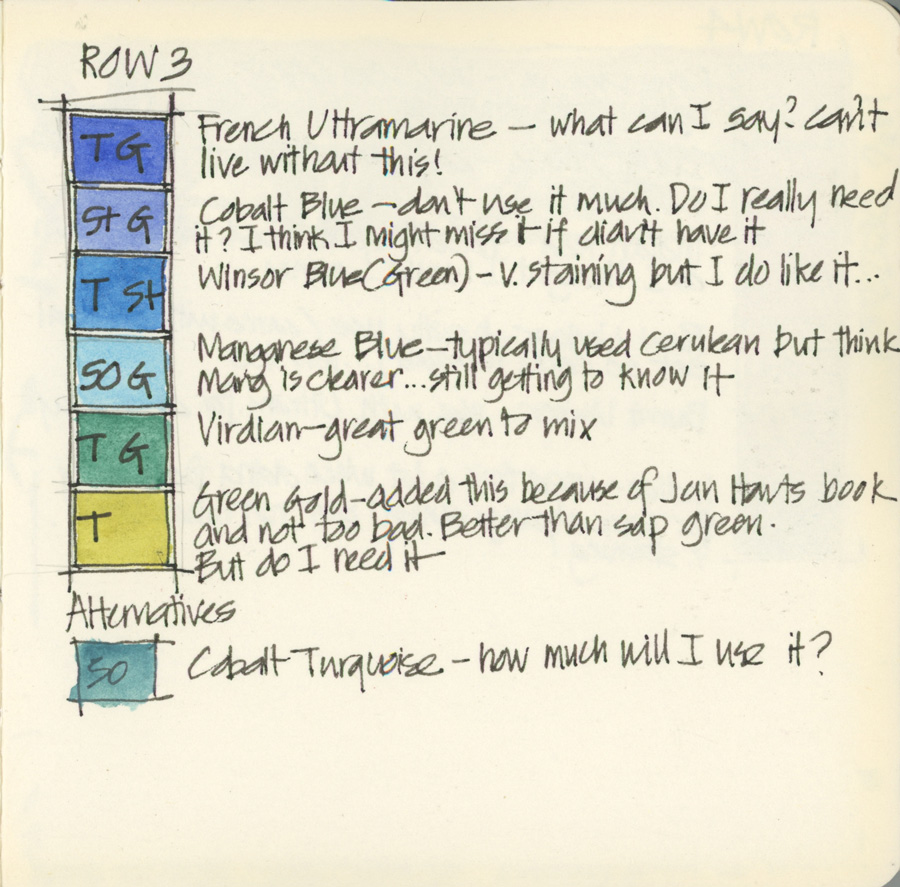 ROW 3
T G
French Ultramarine — what can I say? can't
live without this!
St G
Cobalt Blue — don't use it much. Do I really need
it? I think I might miss it if didn't have it
T St
Winsor Blue (Green) - V. staining but I do like it...
SO G
Manganese Blue — typically used cerulean but think
Mang is clearer... still getting to know it
T G
Virdian — great green to mix
T
Green Gold - added this because of Jean Hauts book
and not too bad. Better than sap green.
But do I need it
Alternatives
SO
Cobalt Turquoise — how much will I use it?